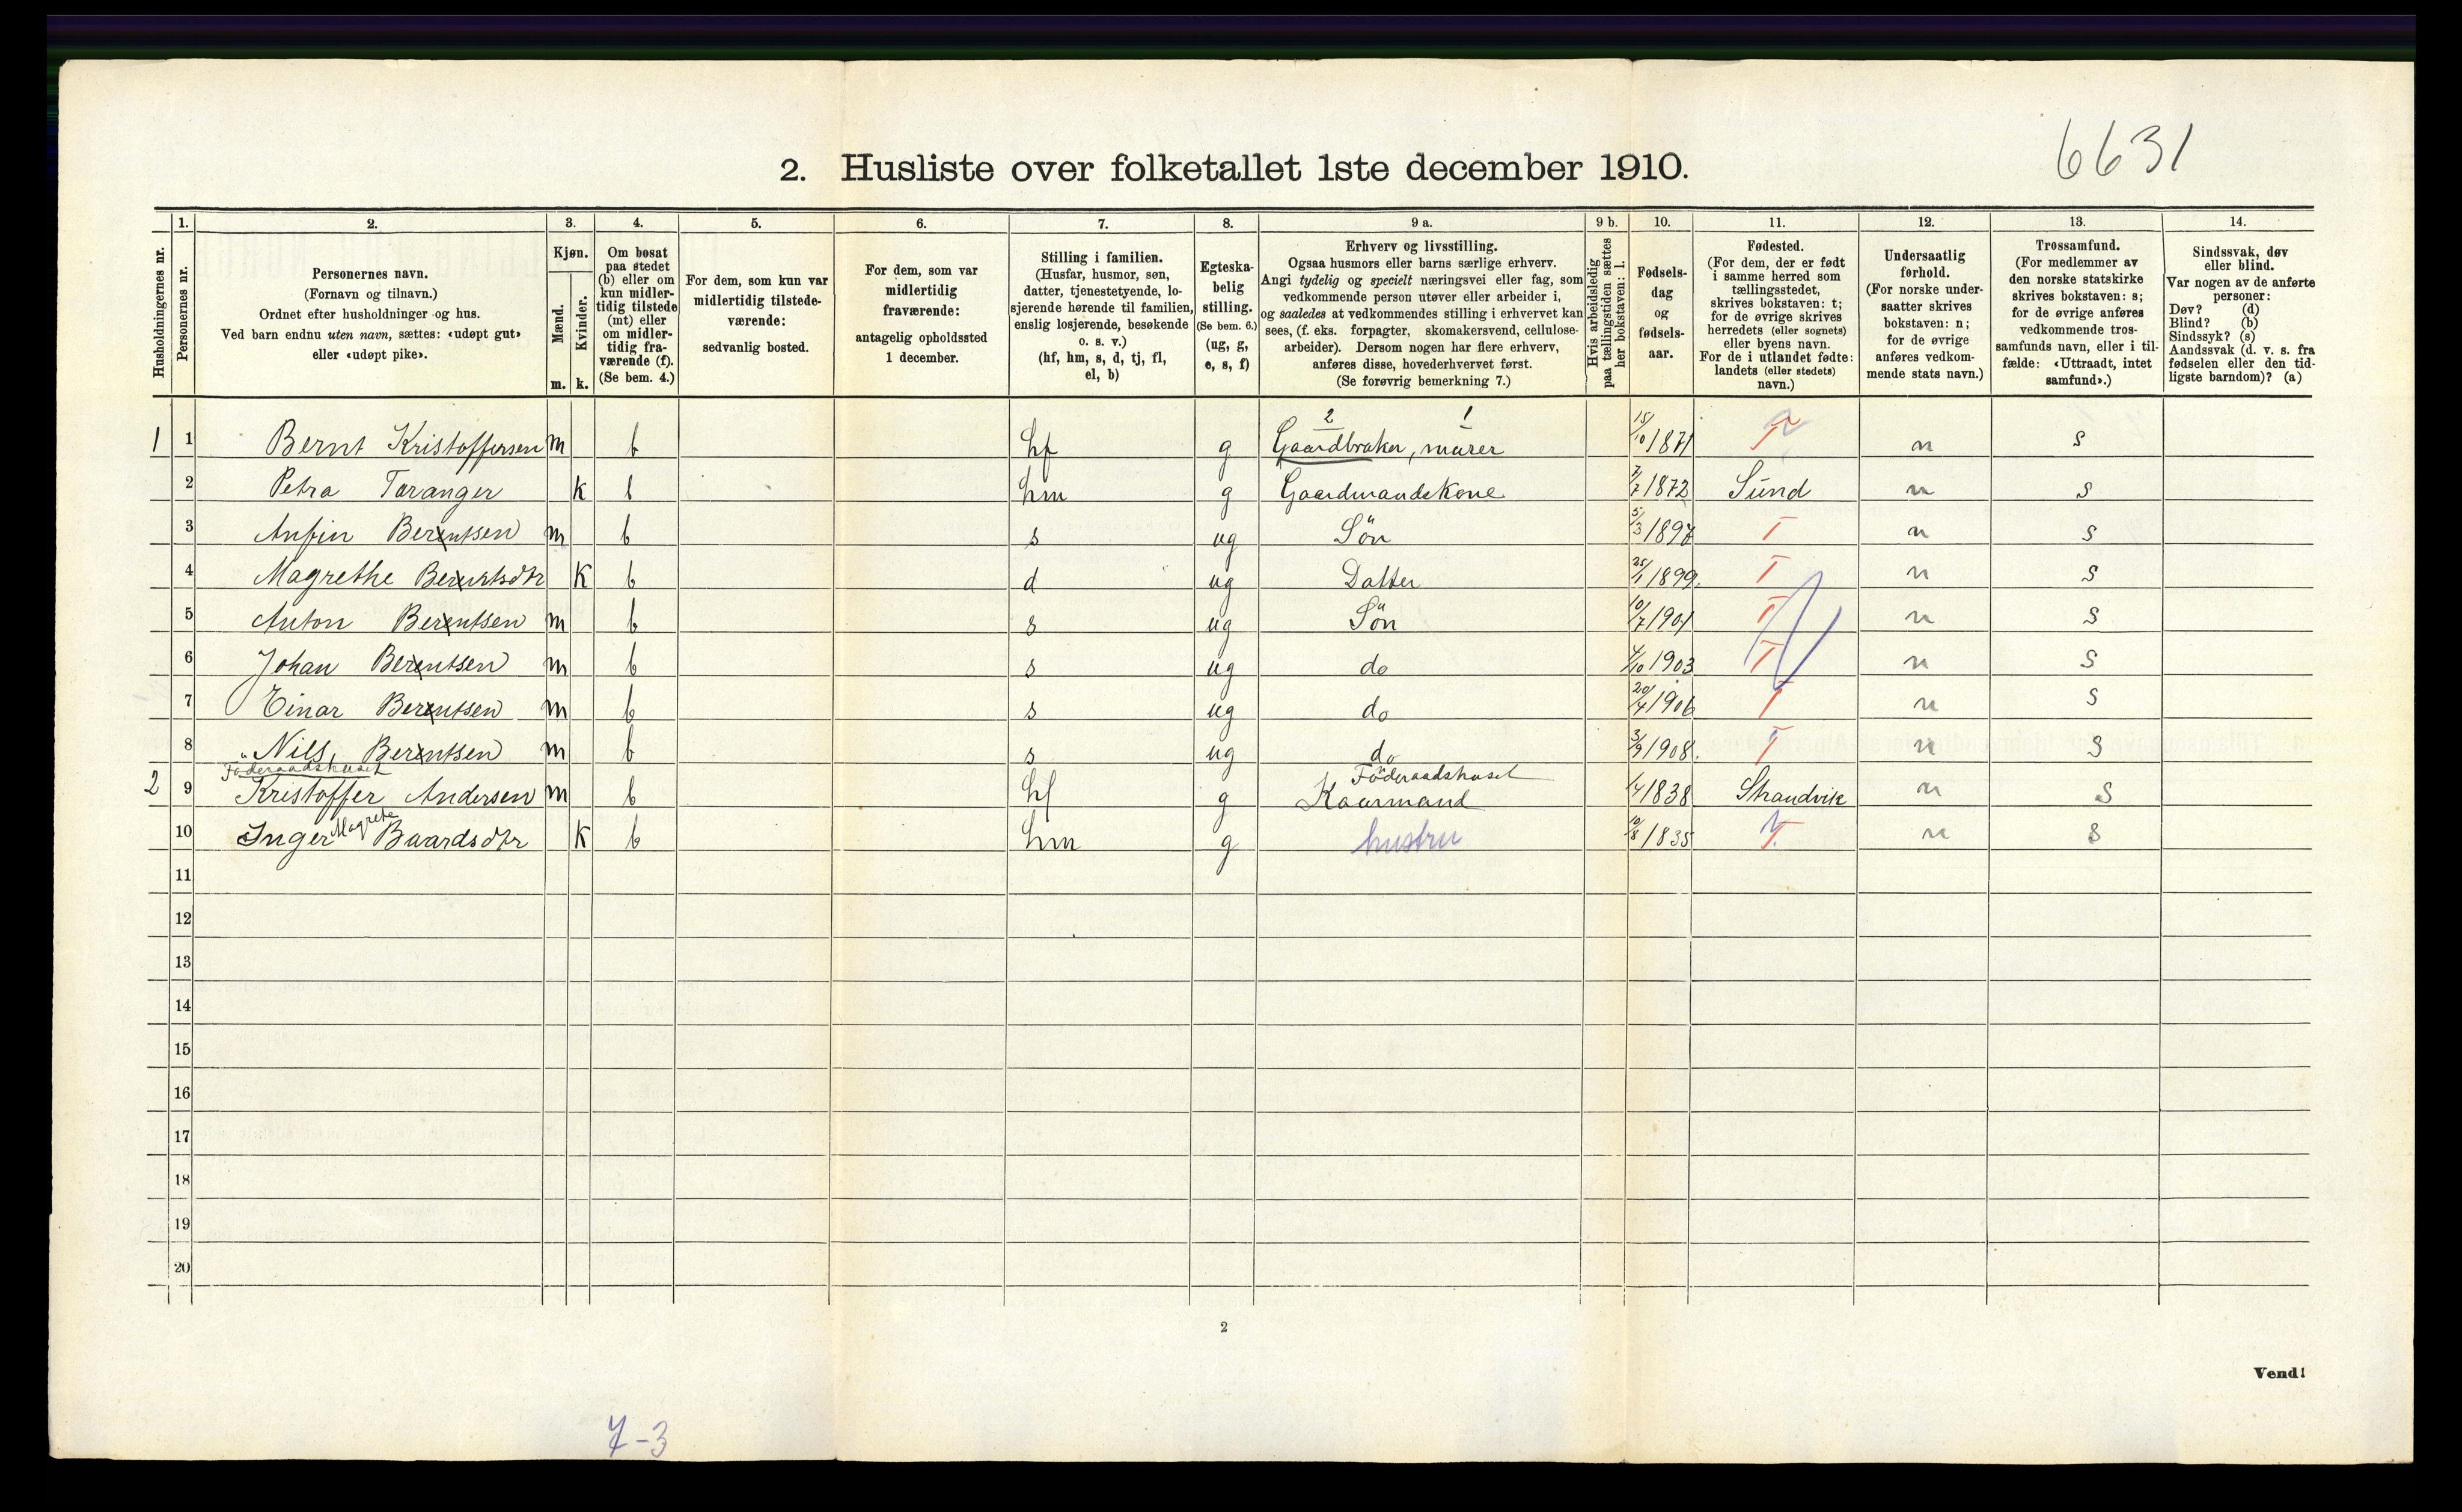 6631
2. Husliste over folketallet 1ste december 1910.
Husholdningernes nr.
1.
Personernes nr.
2.
Personernes navn.
(Fornavn og tilnavn.)
Ordnet efter husholdninger og hus.
Ved barn endnu uten navn, sættes: «udøpt gut»
eller «udøpt pike».
3.
Kjøn.
Mænd.
m.
Kvinder.
k.
4.
Om bosat
paa stedet
(b) eller om
kun midler-
tidig tilstede
(mt) eller
om midler-
tidig fra-
værende (f).
(Se bem. 4.)
5.
For dem, som kun var
midlertidig tilstede-
værende:
sedvanlig bosted.
6.
For dem, som var
midlertidig
fraværende:
antagelig opholdssted
1 december.
7.
Stilling i familien.
(Husfar, husmor, søn,
datter, tjenestetyende, lo-
sjerende hørende til familien,
enslig losjerende, besøkende
o. s. v.)
(hf, hm, s, d, tj, fl,
el, b)
8.
Egteska-
belig
stilling.
(Se bem. 6.)
(ug, g,
e, s, f)
9 a.
Erhverv og livsstilling.
Ogsaa husmors eller barns særlige erhverv.
Angi tydelig og specielt næringsvei eller fag, som
vedkommende person utøver eller arbeider i,
og saaledes at vedkommendes stilling i erhvervet kan
sees, (f. eks. forpagter, skomakersvend, cellulose-
arbeider). Dersom nogen har flere erhverv,
anføres disse, hovederhvervet først.
(Se forøvrig bemerkning 7.)
9 b.
Hvis arbeidsledig
paa tællingstiden sættes
her bokstaven: l.
10.
Fødsels-
dag
og
fødsels-
aar.
11.
Fødested.
(For dem, der er født
i samme herred som
tællingsstedet,
skrives bokstaven: t;
for de øvrige skrives
herredets (eller sognets)
eller byens navn.
For de i utlandet fødte:
landets (eller stedets)
navn.)
12.
Undersaatlig
forhold.
(For norske under-
saatter skrives
bokstaven: n;
for de øvrige
anføres vedkom-
mende stats navn.)
13.
Trossamfund.
(For medlemmer av
den norske statskirke
skrives bokstaven: s;
for de øvrige anføres
vedkommende tros-
samfunds navn, eller i til-
fælde: «Uttraadt, intet
samfund».)
14.
Sindssvak, døv
eller blind.
Var nogen av de anførte
personer:
Døv? (d)
Blind? (b)
Sindssyk? (s)
Aandssvak (d. v. s. fra
fødselen eller den tid-
ligste barndom)? (a)
2 1
1 1 Bernt Kristoffersen m b hf g Gaardbruker, murer 15/10 1871 T n s
2 Petra Taranger k b hm g Gaardmandskone 7/7 1872 Sund n s
3 Anfin Berentsen m b s ug Sön 5/3 1897 T n s
4 Magrethe Berentsdtr k b d ug Datter 25/1 1899. T n s
5 Anton Berentsen m b s ug Sön 10/7 1901 T n s
6 Johan Berentsen m b s ug do 4/10 1903 T n s
7 Einar Berentsen m b s ug do 20/4 1906 T n s
8 Nils, Berentsen m b s ug do 3/9 1908. T n s
Föderaadshuset Föderaadshuset
2 9 Kristoffer Andersen m b hf g Kaarmand 1/4 1838 Strandvik n s
10 Inger Magrete Baardsdtr k b hm g hustru 10/8 1835 T. n s
11
12
13
14
15
16
17
18
19
20
2
Vend!
7-3